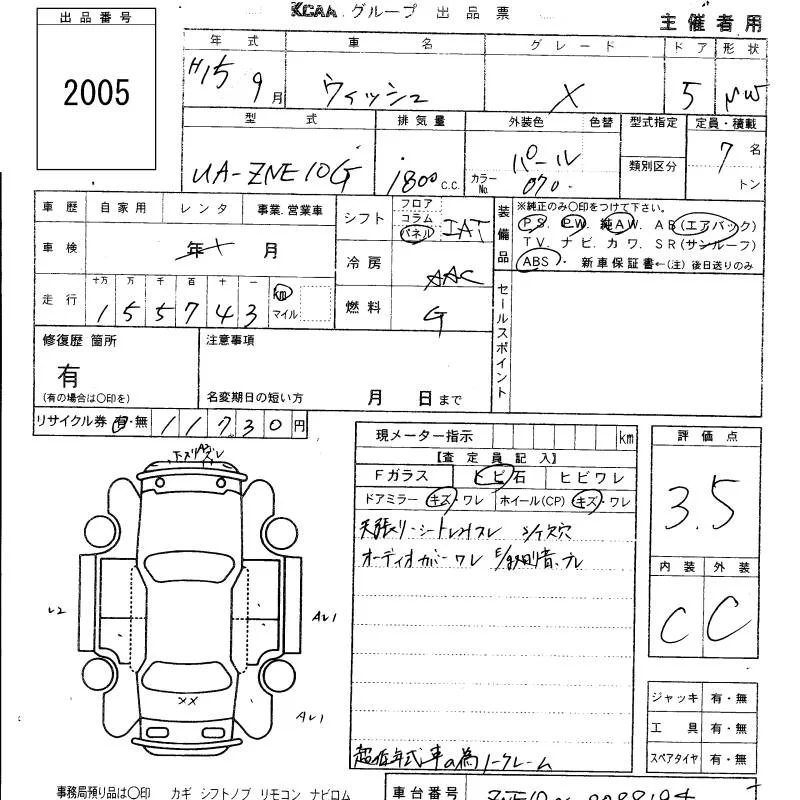 出品番号
KCAA グループ 出品票
主催者用
2005
年式 車名 グレード ドア 形状
H15 9月 ウィッシュ X 5
型式 排気量 外装色 色替 型式指定 定員・積載
UA-ZNE10G 1800 C.C. パール カラーNo. 070 類別区分 7名 トン
車歴 自家用 レンタ 事業.営業車
シフト フロア コラム パネル IAT
装備品
※純正のみ〇印をつけて下さい。
PS. PW. 純AW. AB(エアバック)
TV. ナビ. カワ. SR(サンルーフ)
ABS ・ 新車保証書←(注)後日送りのみ
車検 年 X 月
冷房 AAC
走行 十万 万 千 百 十 一
1 5 5 7 4 3 km マイル
燃料 G
セールスポイント
修復歴 箇所
有
(有の場合は〇印を)
注意事項
名変期日の短い方 月 日まで
リサイクル券 有・無 11730円
現メーター指示 km
評価点
3.5
【査定員記入】
Fガラス トビ石 ヒビワレ
ドアミラー キズ・ワレ ホイール(CP) キズ・ワレ
天張リーシート
オーディオカバーワレ
内装 外装
C C
AV1
AV1
XX
ジャッキ 有・無
工具 有・無
スペアタイヤ 有・無
超低年式車の為ノークレーム
事務局預り品は〇印 カギ シフトノブ リモコン ナビロム
車台番号